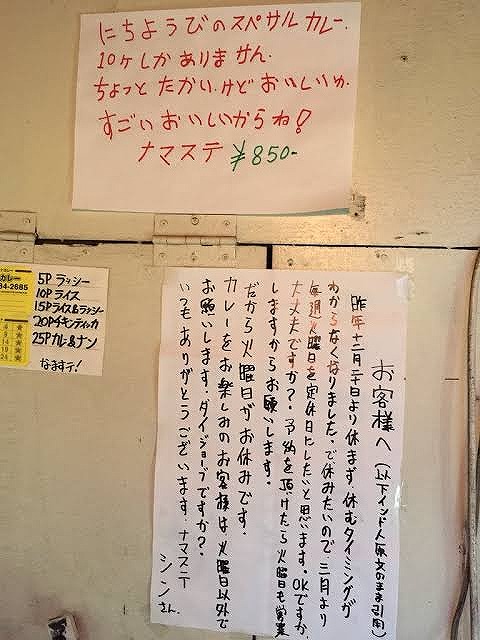 にちようびのスペサルカレー.
10ケしかありません.
ちょっとたかい.けどおいしいよ.
すごいおいしいからね!
ナマステ ¥850-
カレー
34-2685
5P ラッシー
10P ライス
15P ライス&ラッシー
20P チキンティカ
25P カレー&ナン
なますテ!
お客様へ(以下インド人原文のまま引用)
昨年十二月二十日より休まず、休むタイミングが
わからなくなりました。で休みたいので、三月より
毎週火曜日を定休日にしたいと思います。OKですか、
大丈夫ですか?。予約を頂けたら火曜日も営業
しますからお願いします。
だから火曜日がお休みです.
カレーをお楽しみのお客様は火曜日以外で
お願いします.ダイジョーブですか?.
いつもありがとうございます.ナマステー
シンさん.